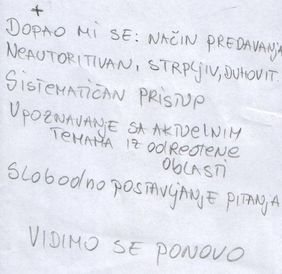 +
DOPAO MI SE: NAČIN PREDAVANJA
NEAUTORITIVAN, STRPLJIV, DUHOVIT.
SISTEMATIČAN PRISTUP
UPOZNAVANJE SA AKTUELNIM
TEMAMA IZ ODREĐENE
OBLASTI
SLOBODNO POSTAVLJANJE PITANJA
VIDIMO SE PONOVO